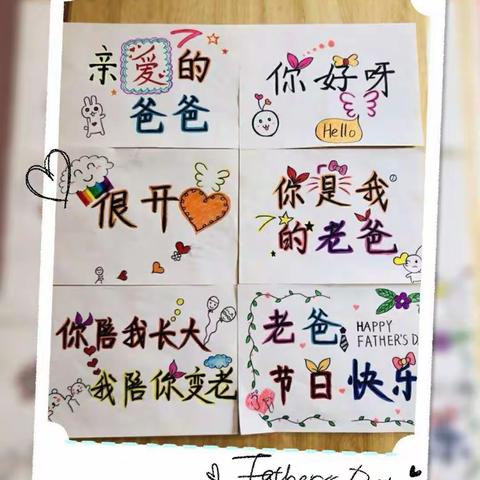 亲爱的
爸爸
你好呀
Hello
很开
你是我
的老爸
你陪我长大
我陪你变老
老爸
HAPPY
FATHER'S D
节日快乐
Father's Day